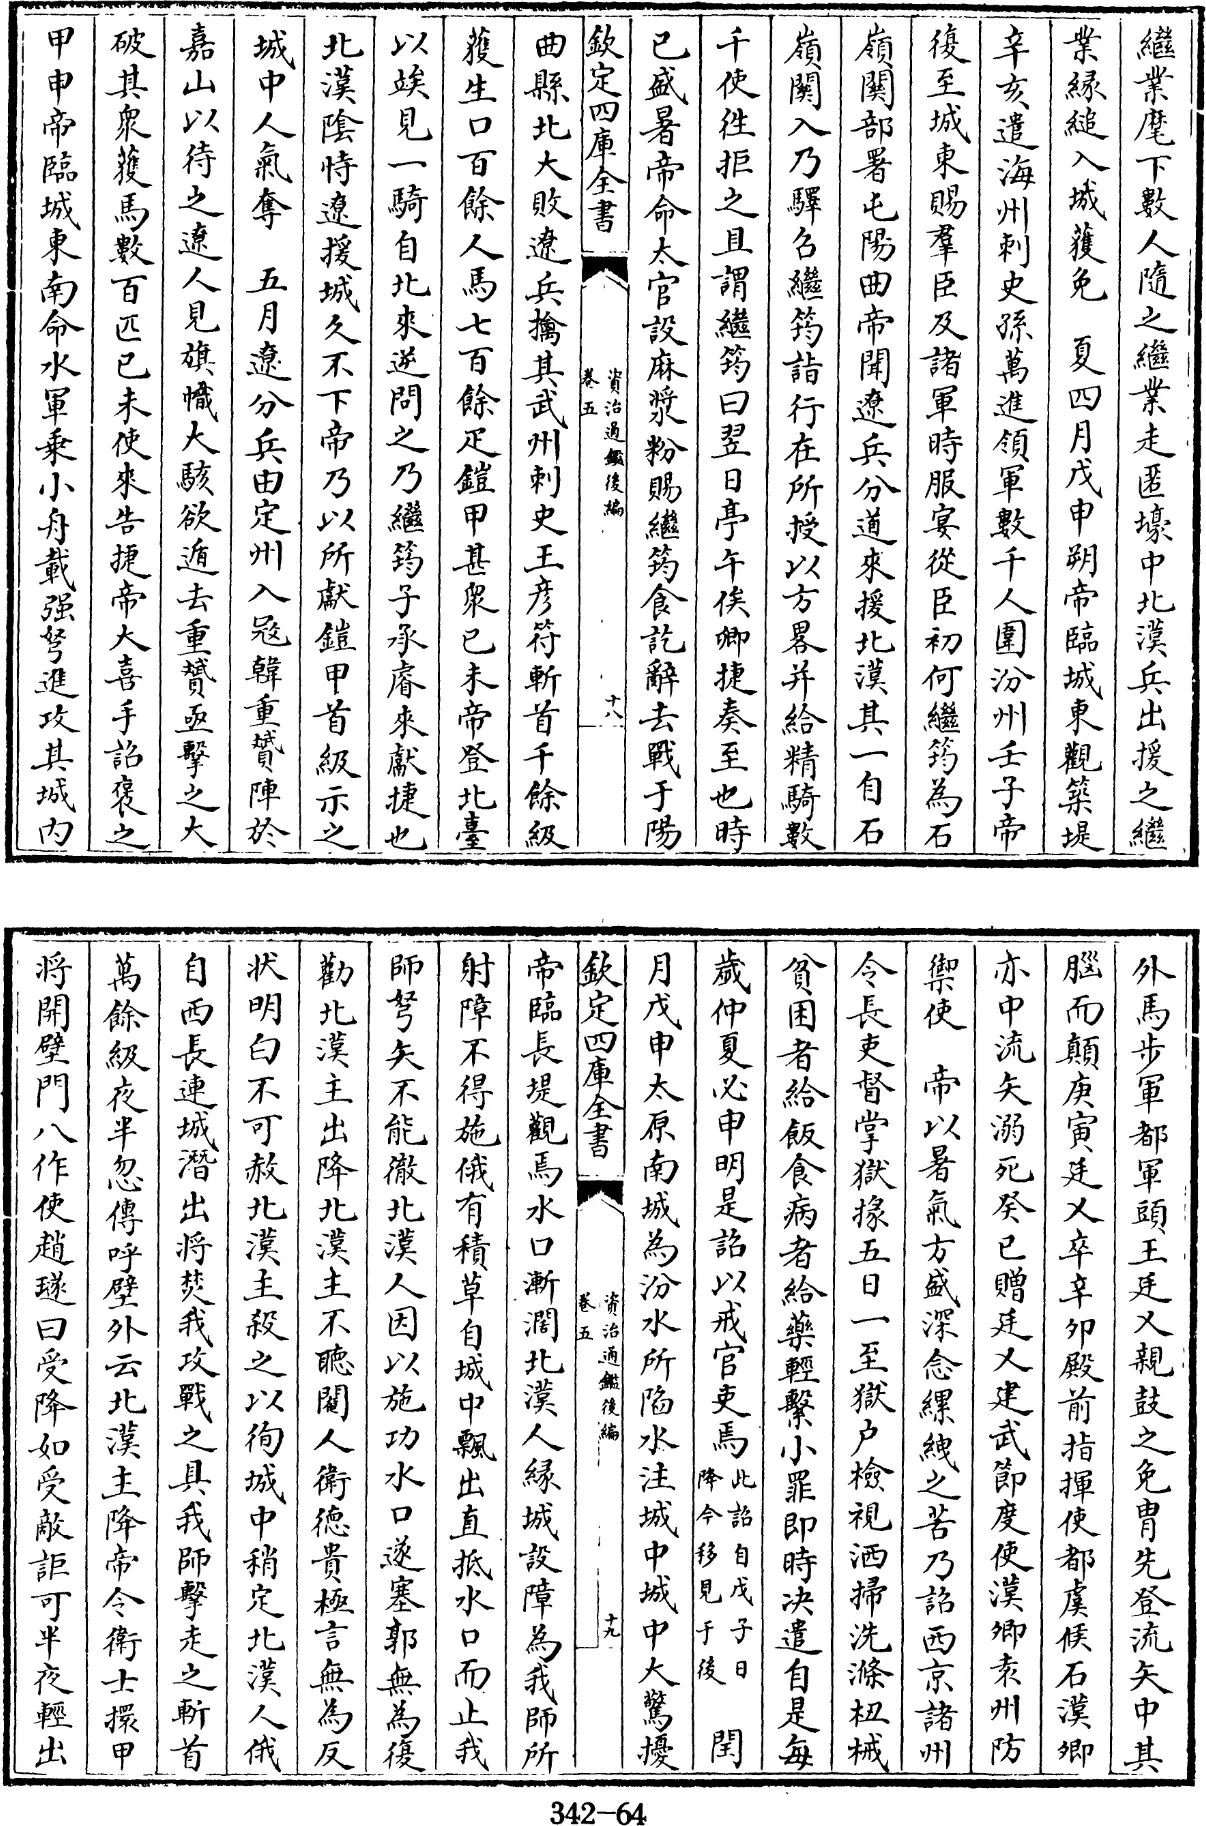 繼業麾下數人隨之繼業走匿壕中北漢兵出援之繼
業緣縋入城獲免　夏四月戊申朔帝臨城東觀築堤
辛亥遣海州刺史孫萬進領軍數千人圍汾州壬子帝
復至城東賜羣臣及諸軍時服宴從臣初何繼筠為石
嶺關部署屯陽曲帝聞遼兵分道來援北漢其一自石
嶺關入乃驛召繼筠詣行在所授以方畧并給精騎數
千使往拒之且謂繼筠曰翌日亭午俟卿捷奏至也時
已盛暑帝命太官設麻漿粉賜繼筠食訖辭去戰于陽
欽定四庫全書
資治通鑑後編
卷五
十八
曲縣北大敗遼兵擒其武州刺史王彦符斬首千餘級
獲生口百餘人馬七百餘疋鎧甲甚衆已未帝登北臺
以竢見一騎自北來遂問之乃繼筠子承睿來獻捷也
北漢陰恃遼援城久不下帝乃以所獻鎧甲首級示之
城中人氣奪　五月遼分兵由定州入冦韓重贇陣於
嘉山以待之遼人見旗幟大駭欲遁去重贇亟擊之大
破其衆獲馬數百匹已未使來告捷帝大喜手詔褒之
甲申帝臨城東南命水軍乘小舟載强弩進攻其城内
外馬步軍都軍頭王廷乂親鼓之免胄先登流矢中其
腦而顛庚寅廷乂卒辛卯殿前指揮使都虞候石漢卿
亦中流矢溺死癸已贈廷乂建武節度使漢卿袁州防
禦使　帝以暑氣方盛深念縲絏之苦乃詔西京諸州
令長吏督掌獄掾五日一至獄户檢視洒掃洗滌杻械
貧困者給飯食病者給藥輕繫小罪即時决遣自是每
歲仲夏必申明是詔以戒官吏焉此詔自戊子日降今移見于後　閏
月戊申太原南城為汾水所陷水注城中城中大驚擾
欽定四庫全書
資治通鑑後編
卷五
十九
帝臨長堤觀焉水口漸濶北漢人緣城設障為我師所
射障不得施俄有積草自城中飄出直抵水口而止我
師弩矢不能徹北漢人因以施功水口遂塞郭無為復
勸北漢主出降北漢主不聽閹人衛德貴極言無為反
狀明白不可赦北漢主殺之以徇城中稍定北漢人俄
自西長連城潛出將焚我攻戰之具我師擊走之斬首
萬餘級夜半忽傳呼壁外云北漢主降帝令衛士擐甲
將開壁門八作使趙璲曰受降如受敵詎可半夜輕出
342-64